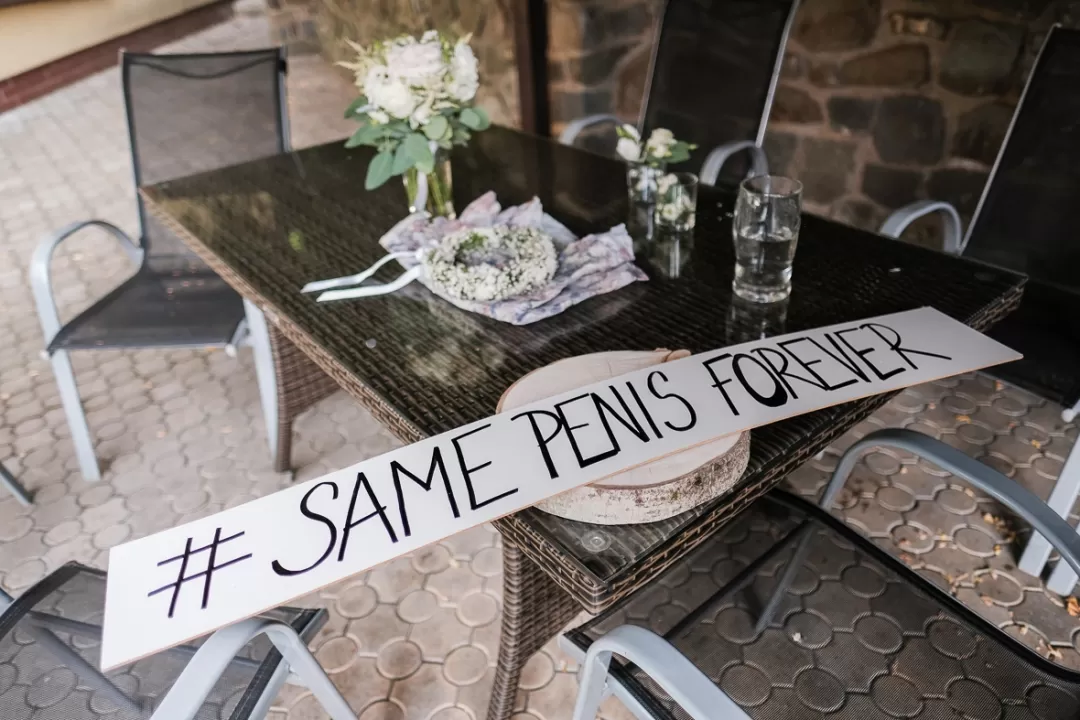 # SAME PENIS FOREVER